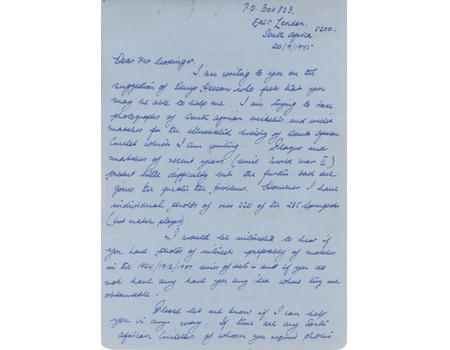 P.O. Box 803,
East London,
5200.
South Africa.
20/9/1975
Dear Mr
I am writing to you on the
suggestion of who feels that you
may be able to help me. I am trying to
photographs of South African cricketers and cricket
matches for the illustrated history of South African
Cricket which I am writing. Players and
matches of recent years (since World War II)
present little difficulty but the further back one
goes the greater the problems. However I have
individual photos of over 220 of the 235
(test match players)
I would be interested to hear if
you have photos of interest preferably of matches
in the 1924/1912/1907 series of tests - and if you do
not have any have you any idea where they are
obtainable.
Please let me know if I can help
you in any way. If there are any South
African cricketers of whom you require photos